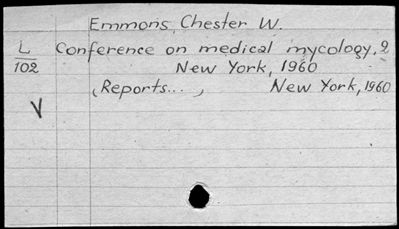 Emmons, Chester W.
L Conference on medical mycology, 2
102 New York, 1960
(Reports... , New York, 1960
V